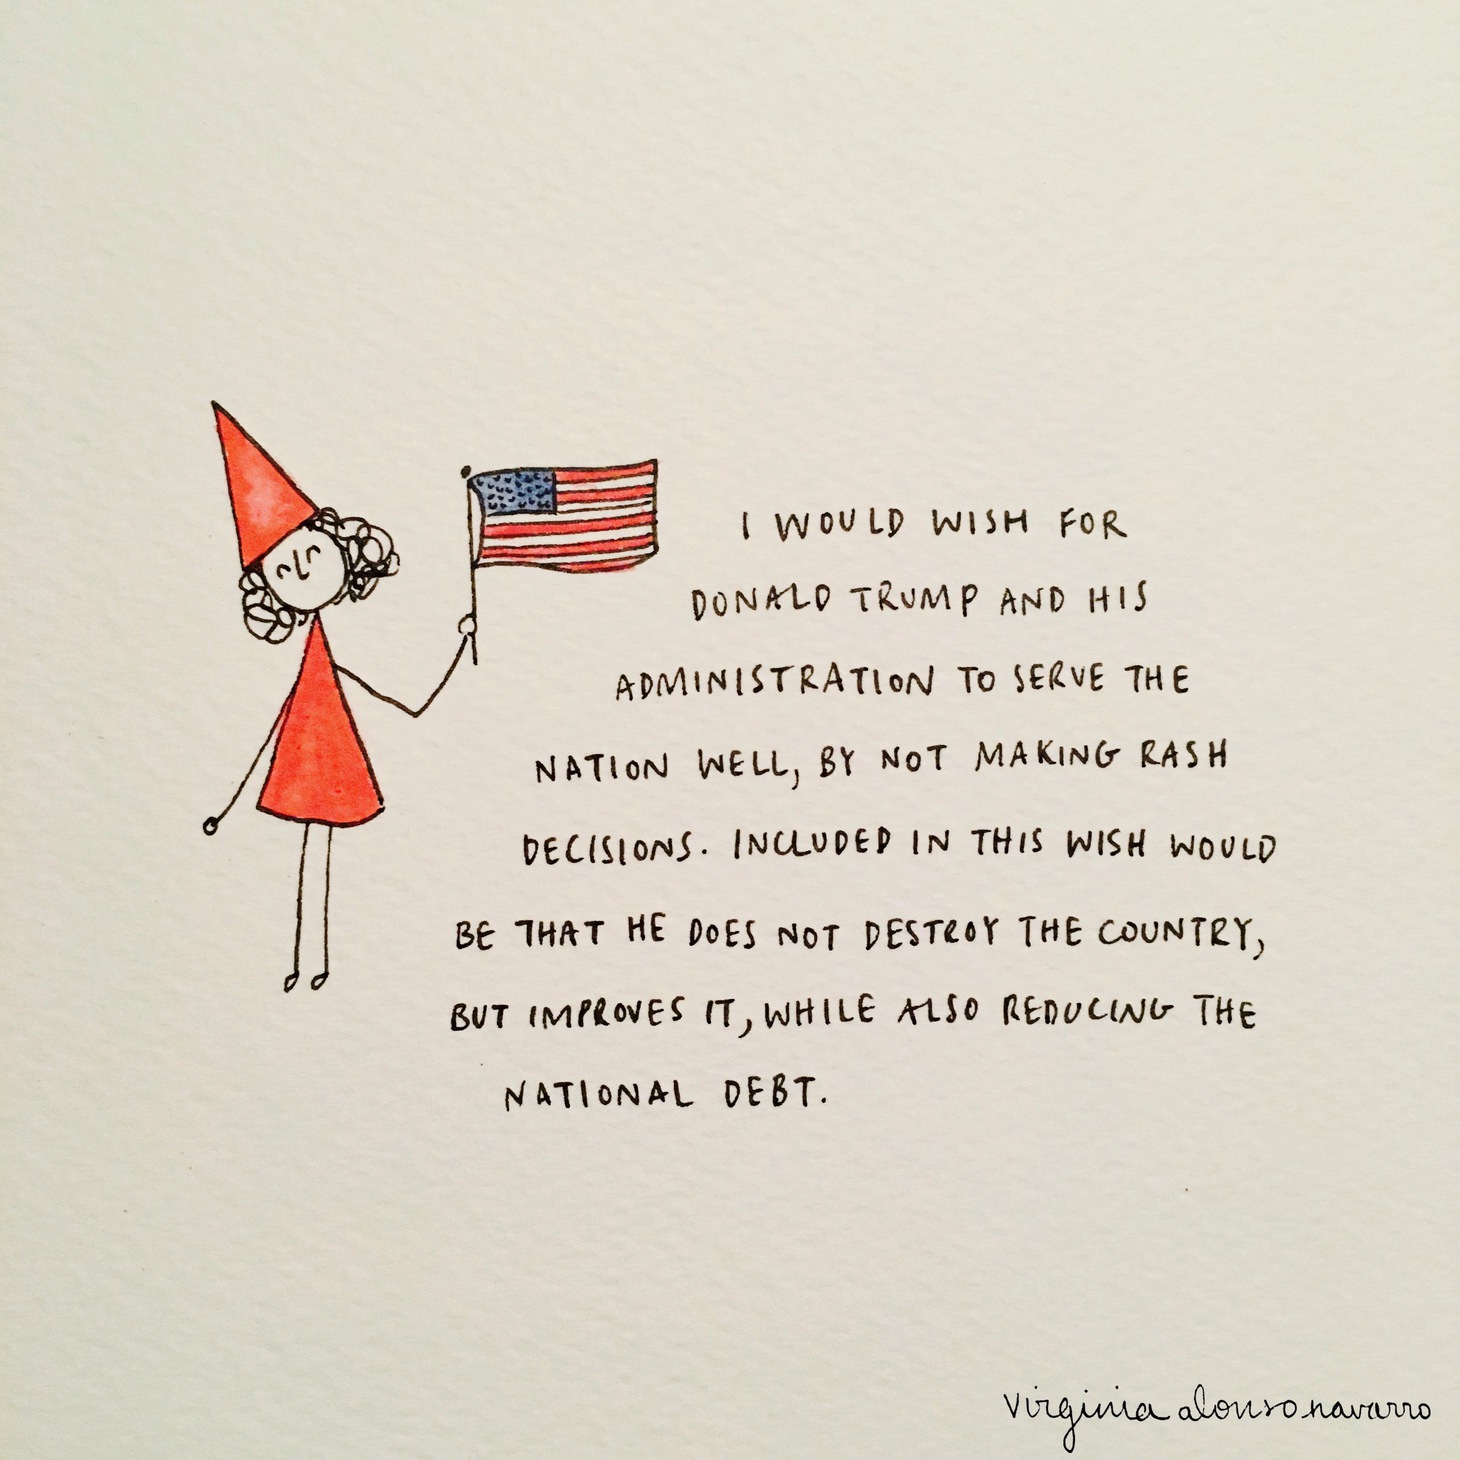 I WOULD WISH FOR
DONALD TRUMP AND HIS
ADMINISTRATION TO SERVE THE
NATION WELL, BY NOT MAKING RASH
DECISIONS. INCLUDED IN THIS WISH WOULD
BE THAT HE DOES NOT DESTROY THE COUNTRY,
BUT IMPROVES IT, WHILE ALSO REDUCING THE
NATIONAL DEBT.
virginia alonso navarro